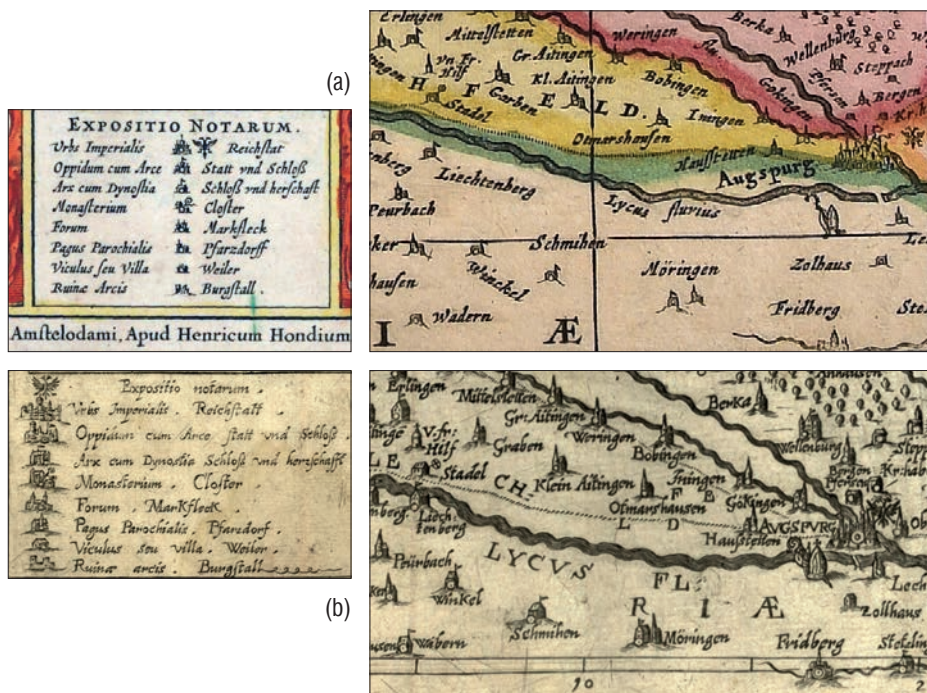 (a)
EXPOSITIO NOTARUM.
Urbs Imperialis Reichſtat
Oppidum cum Arce Statt vnd Schloß
Arx cum Dynoſtia Schloß vnd herſchaft
Monaſterium Cloſter
Forum Markfleck
Pagus Parochialis Pfarzdorff
Viculus ſeu Villa Weiler
Ruinæ Arcis Burgſtall.
Amſtelodami, Apud Henricum Hondium
Erlingen
Mittelſtetten
Gr. Aitingen
Weringen
flu.
Berka
Wellenburg
Steppach
vn Fr. Hilf
Kl. Aitingen
Bobingen
Pferſen
Bergen
H F E L D.
Garben
Gokingen
Kr. h
Stadel
Iningen
Otmarshauſen
Hauſſtetten
Augspurg
Liechtenberg
Lycus fluvius
Peurbach
Schmihen
Winckel
Möringen
Zollhaus
hauſen
Wadern
Fridberg
I Æ
(b)
Expoſitio notarum.
Vrbs Imperialis. Reichſtatt.
Oppidum cum Arce ſtatt vnd Schloß.
Arx cum Dynoſtia Schloß vnd herzſchafft
Monaſterium. Cloſter.
Forum. Markfleck.
Pagus Parochialis. Pfarzdorf.
Viculus ſeu villa. Weiler.
Ruinæ arcis. Burgſtall
Erlingen
Mittelſtetten
Gr: Aitingen
Berka
V. fr: Hilf
Graben
Weringen
Wellenburg
Bobingen
Bergen
Pferſen
LE CH: F E L D
Stadel
Klein Aitingen
Iningen
Otmarshauſen
Gökingen
AVGSPVRG
Hauſſtetten
Liechtenberg
LYCVS FL:
Pëurbach
Winkel
R I Æ
Zollhaus
Schmihen
Möringen
Wabern
Fridberg
10
2